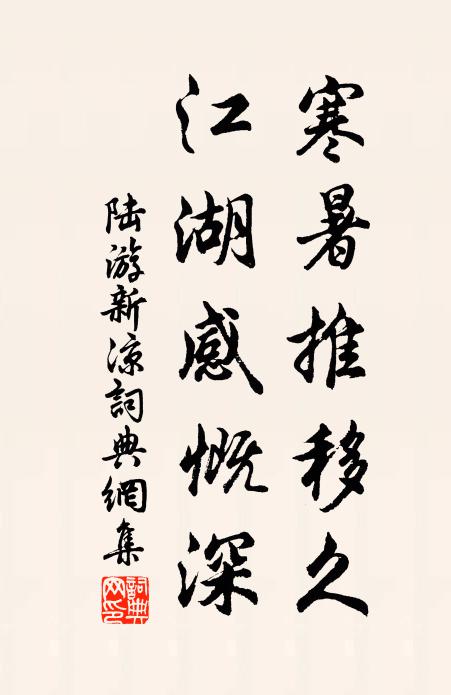 寒暑推移久
江湖感慨深
陆游新凉詞典網集
詞典网印